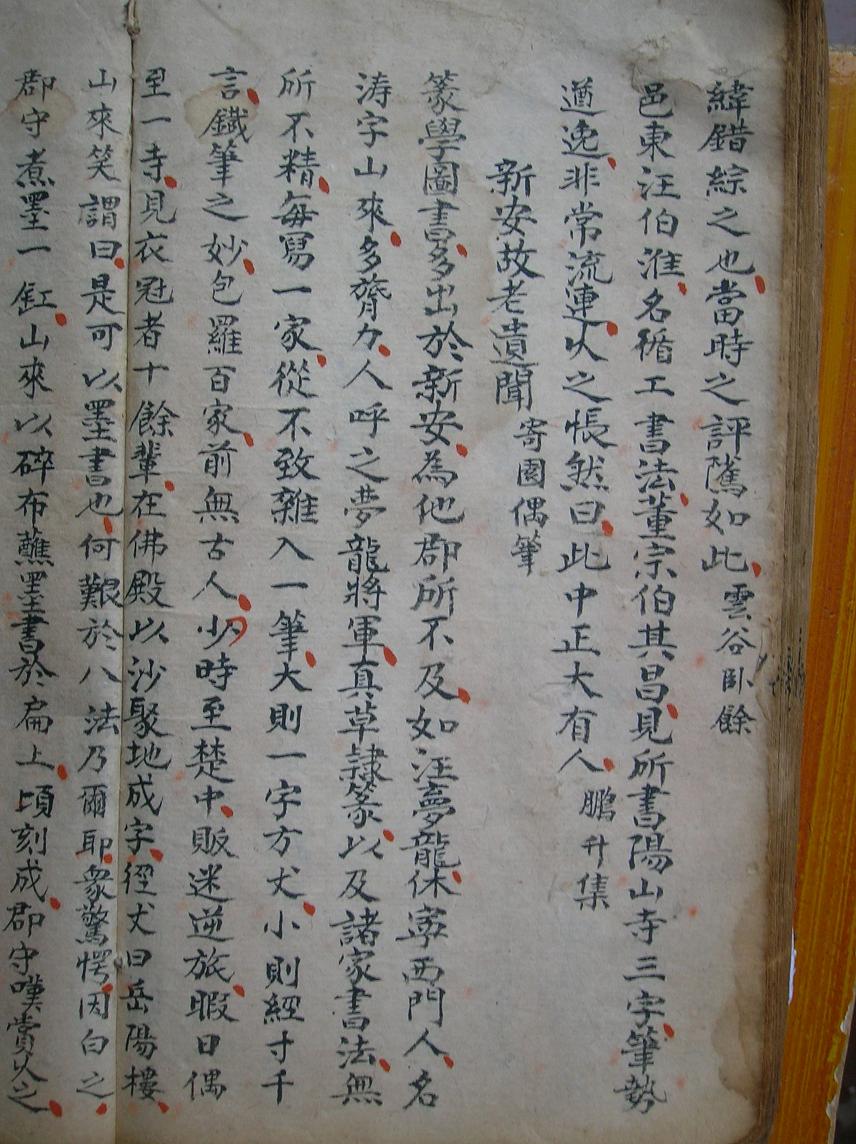 緯錯綜之也當時之評隲如此 雲谷卧餘
邑東汪伯淮名循工書法董宗伯其昌見所書陽山寺三字筆勢
遒逸非常流連久之悵然曰此中正大有人 鵬升集
新安故老遺聞 寄園偶筆
篆學圖書多出於新安為他郡所不及如汪夢龍休寧西門人名
濤字山來多膂力人呼之夢龍將軍真草隸篆以及諸家書法無
所不精每寫一家從不致雜入一筆大則一字方丈小則經寸千
言鐵筆之妙包羅百家前無古人少時至楚中販迷逆旅暇日偶
至一寺見衣冠者十餘輩在佛殿以沙聚地成字徑丈曰岳陽樓
山來笑謂曰是可以墨書也何艱於八法乃爾耶衆驚愕因白之
郡守煮墨一缸山來以碎布蘸墨書於扁上頃刻成郡守嘆賞久之